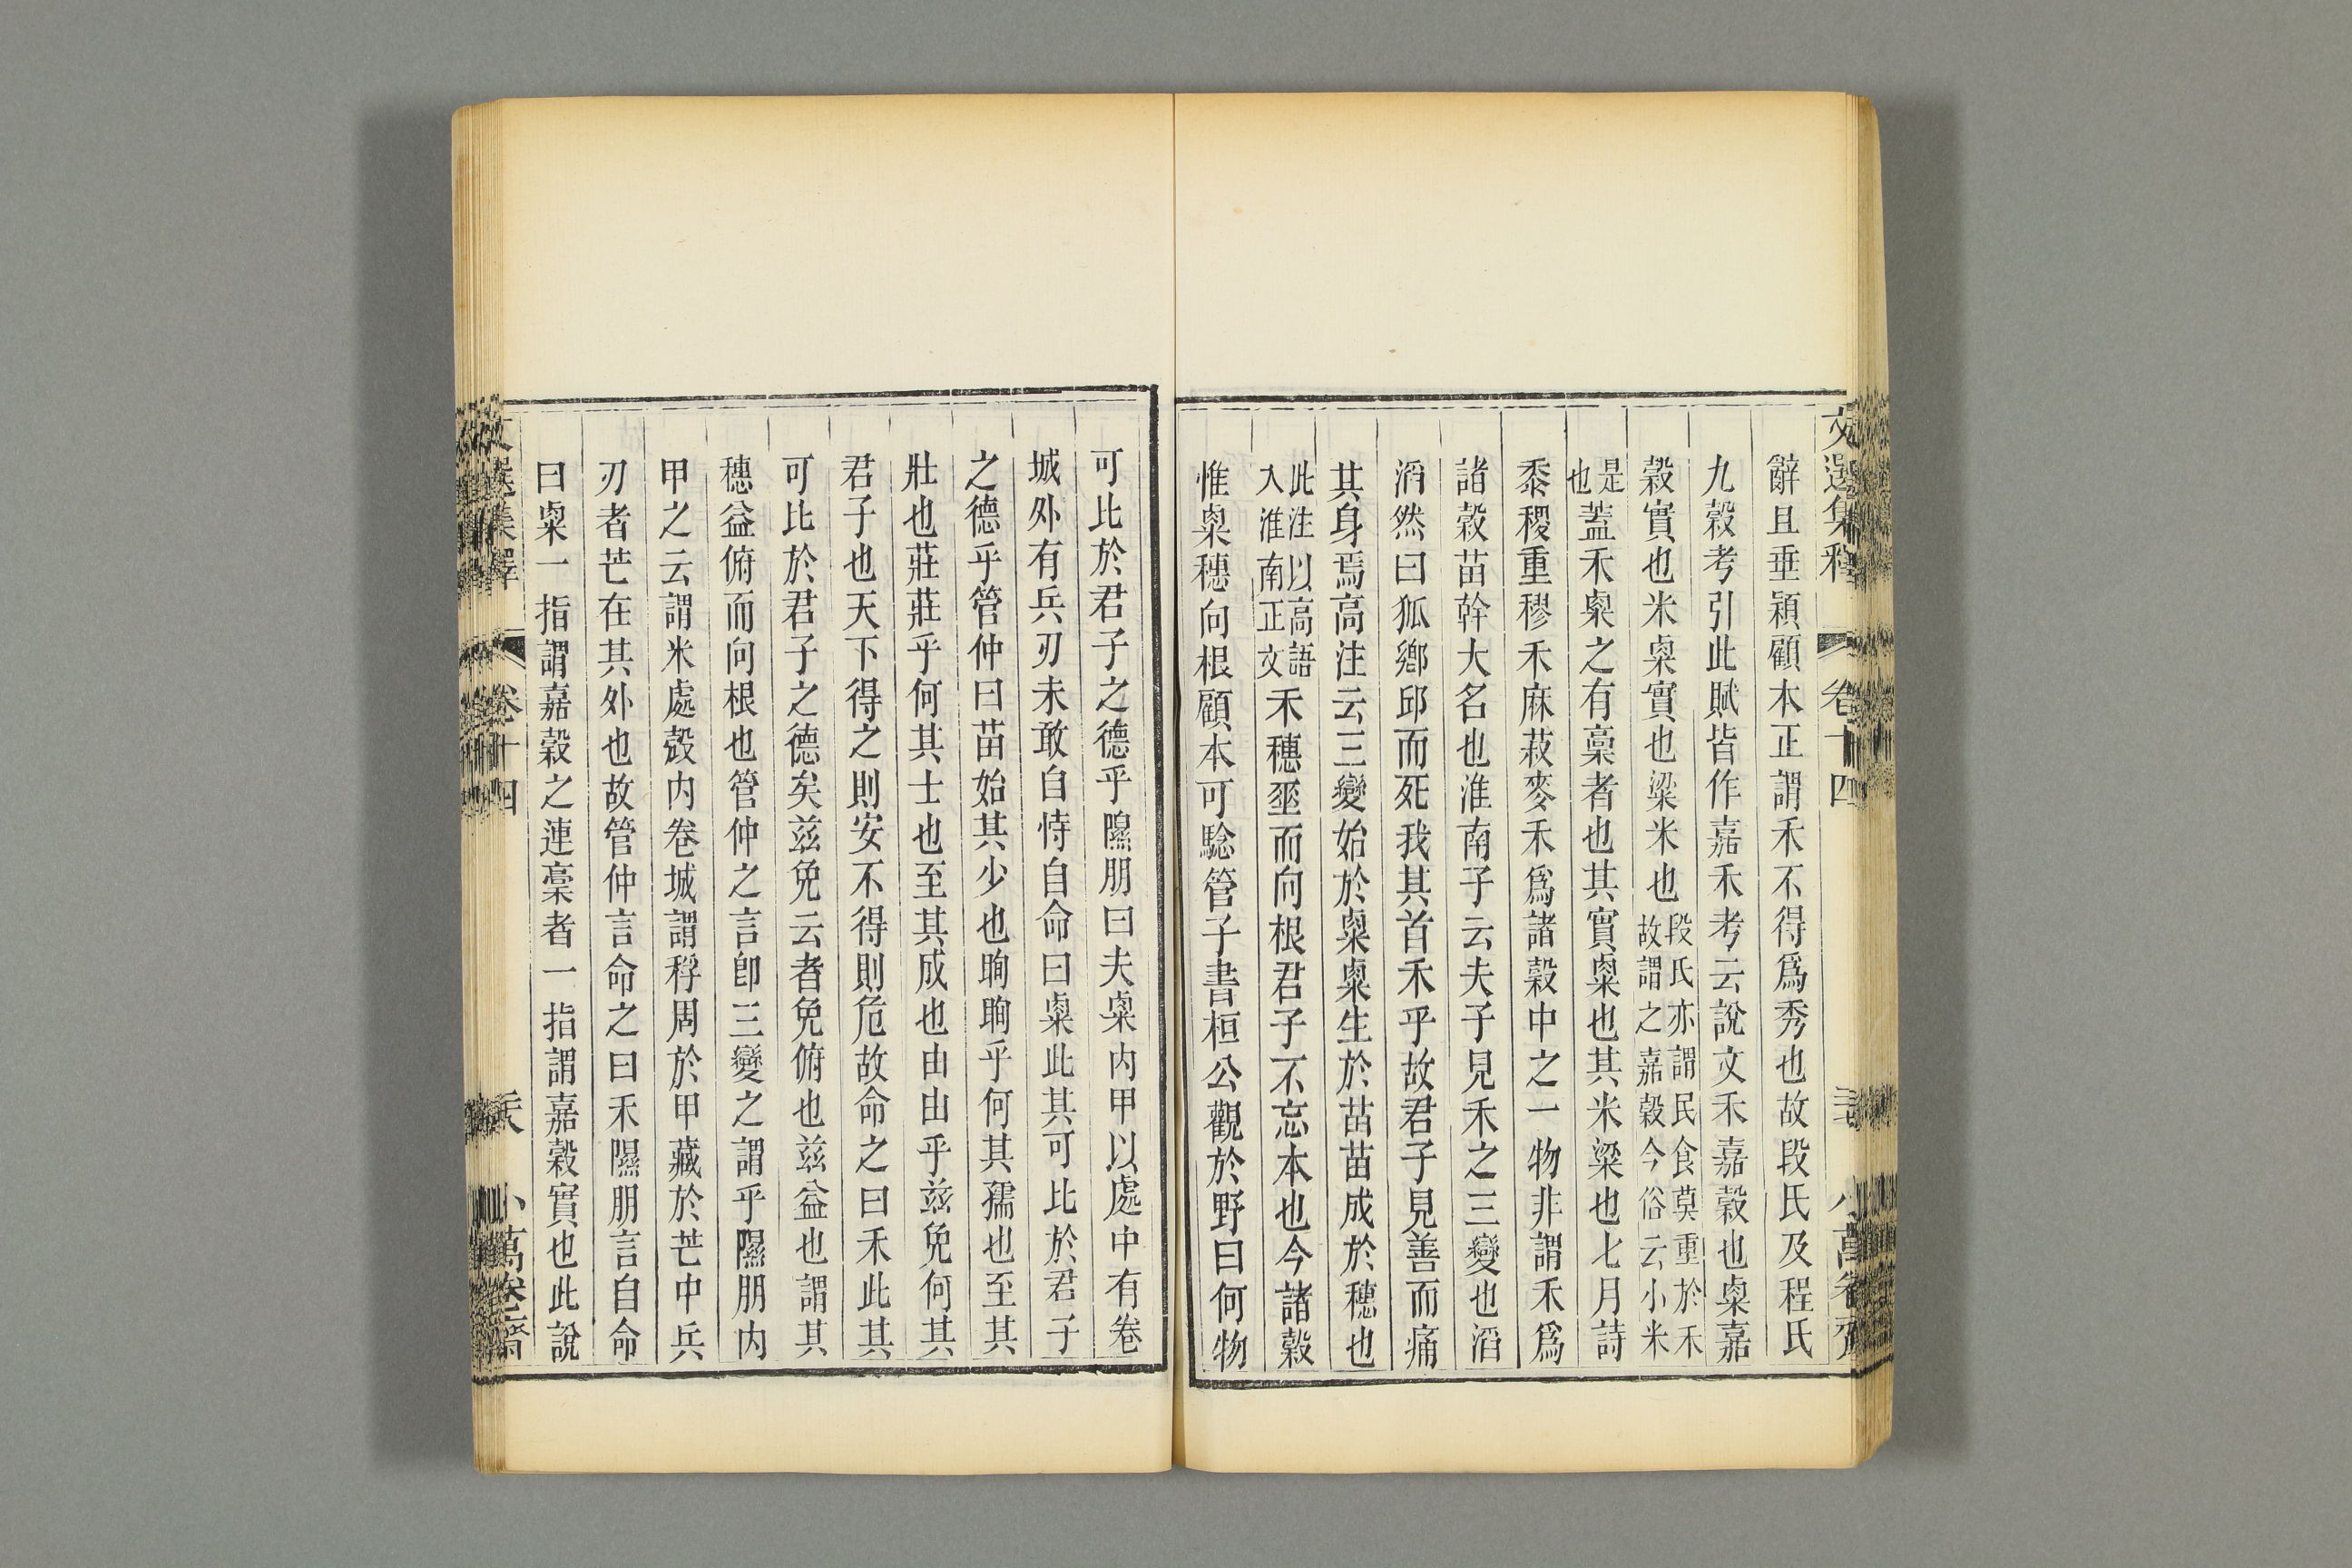 辭且垂穎顧本正謂禾不得爲秀也故段氏及程氏
九穀考引此賦皆作嘉禾考云說文禾嘉穀也㮚嘉
穀實也米㮚實也粱米也段氏亦謂民食莫重於禾故謂之嘉穀今俗云小米
是也蓋禾㮚之有稾者也其實㮚也其米粱也七月詩
黍稷重穋禾麻菽麥禾爲諸穀中之一物非謂禾爲
諸穀苗幹大名也淮南子云夫子見禾之三變也滔
滔然曰狐鄉邱而死我其首禾乎故君子見善而痛
其身焉高注云三變始於㮚㮚生於苗苗成於穗也
此注以高語入淮南正文禾穗垂而向根君子不忘本也今諸穀
惟㮚穗向根顧本可驗管子書桓公觀於野曰何物
可比於君子之德乎隰朋曰夫㮚内甲以處中有卷
城外有兵刃未敢自恃自命曰㮚此其可比於君子
之德乎管仲曰苗始其少也眴眴乎何其孺也至其
壯也莊莊乎何其士也至其成也由由乎兹免何其
君子也天下得之則安不得則危故命之曰禾此其
可比於君子之德矣兹免云者免俯也兹益也謂其
穗益俯而向根也管仲之言卽三變之謂乎隰朋内
甲之云謂米處殼内卷城謂稃周於甲藏於芒中兵
刃者芒在其外也故管仲言命之曰禾隰朋言自命
曰㮚一指謂嘉穀之連稾者一指謂嘉穀實也此說
文選集釋
卷十四
小萬卷齋